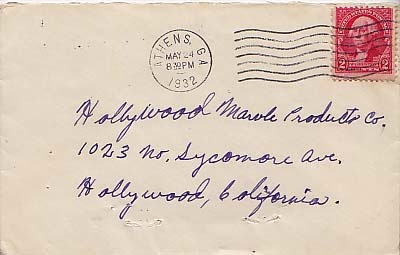 ATHENS, GA
MAY 24
8 30 PM
1932
2 2
Hollywood Marvle Products Co.
1023 No. Sycomore Ave.
Hollywood, California.